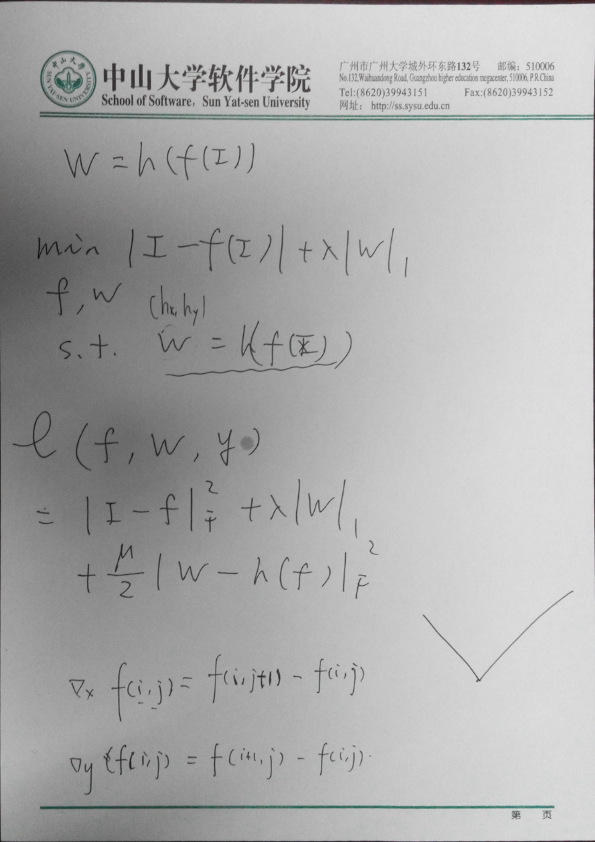 中山大学软件学院
School of Software, Sun Yat-sen University
SUN YAT-SEN UNIVERSITY
广州市广州大学城外环东路132号 邮编：510006
No.132,Waihuandong Road, Guangzhou higher education megacenter, 510006, P.R.China
Tel:(8620)39943151 Fax:(8620)39943152
网址： http://ss.sysu.edu.cn
W = h(f(I))
min |I - f(I)| + λ|W|₁
f, w (hx, hy)
s.t. W = h(f(I))
ℓ(f, W, y)
= |I - f|²_F + λ|W|₁
+ μ/2 |W - h(f)|²_F
∇x f(i,j) = f(i,j+1) - f(i,j)
∇y f(i,j) = f(i+1,j) - f(i,j).
第 页